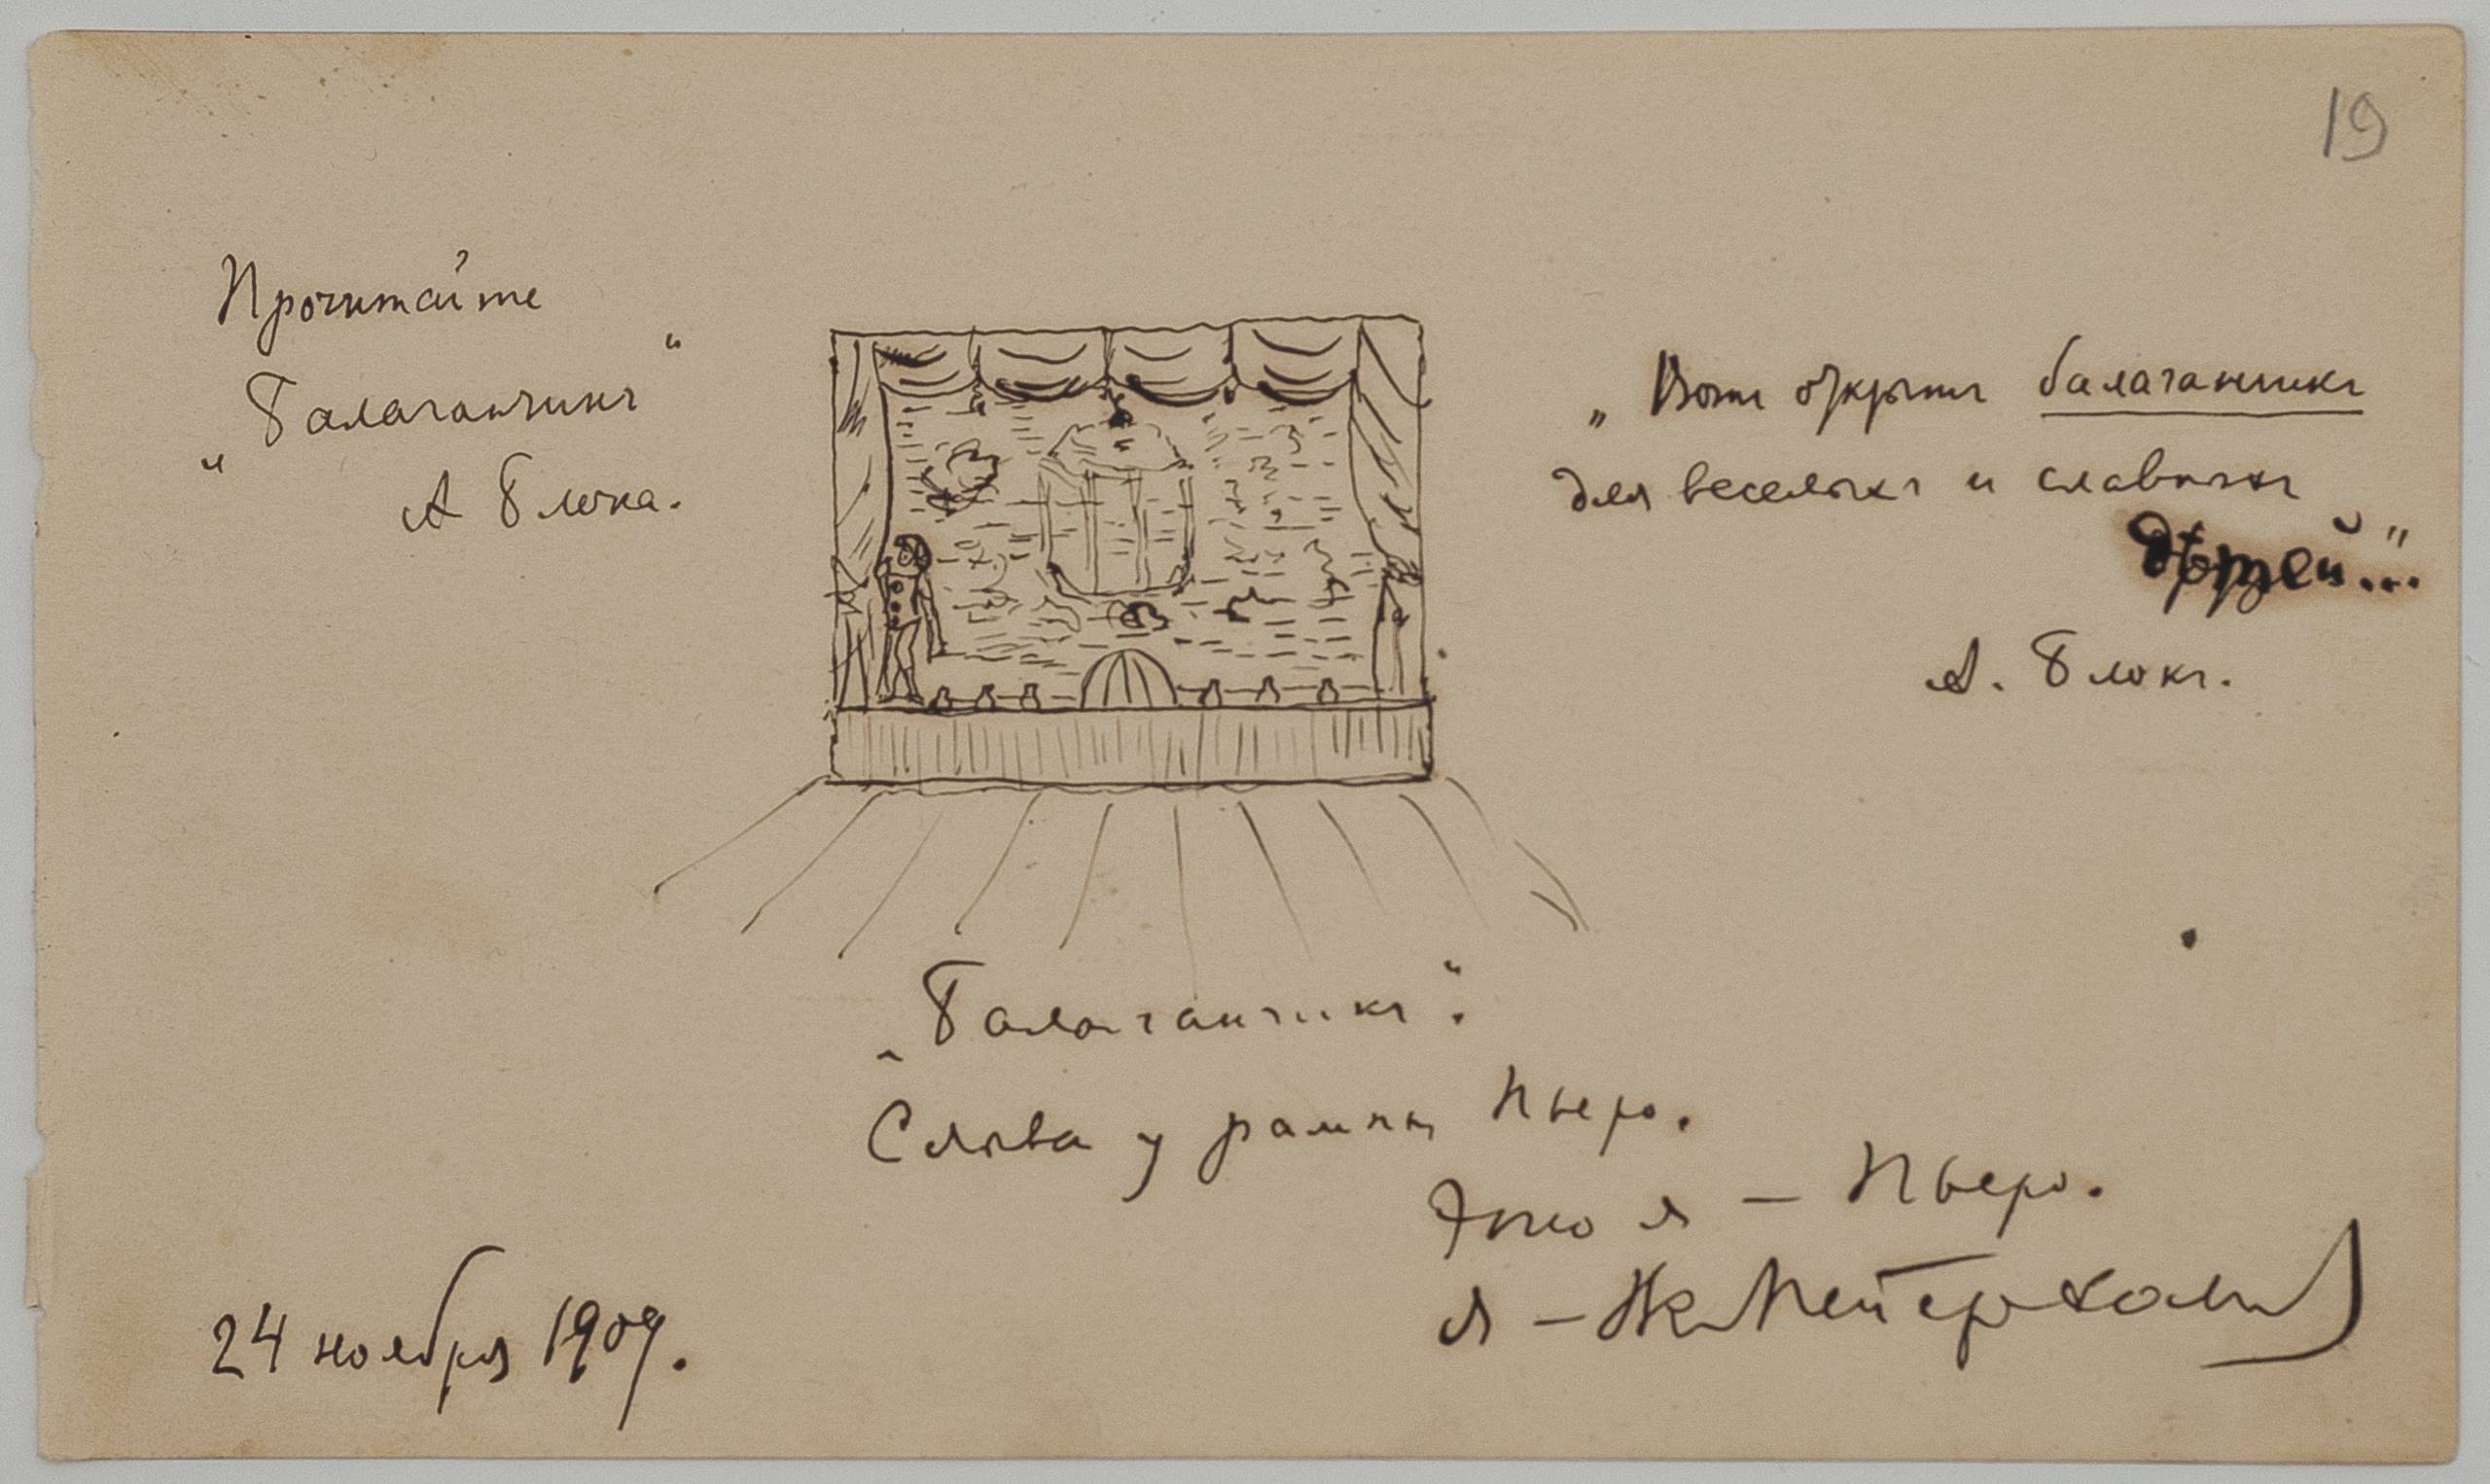 19
Прочитайте
„Балаганчикъ“
А Блока.
„Вотъ открытъ балаганчикъ
для веселыхъ и славныхъ
дѣтей...“
А. Блокъ.
„Балаганчикъ“.
Слова у рампы Пьеро.
Это я – Пьеро.
Я – Вс Мейерхольд
24 ноября 1909.